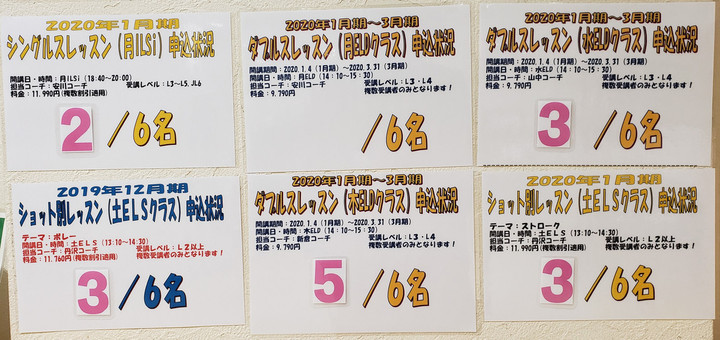 2020年1月期
シングルスレッスン(月ILSi)申込状況
開講日・時間:月ILSi(18:40~20:00)
担当コーチ:安川コーチ 受講レベル:L3~L5、JL6
料金:11.990円(複数割引適用)
2/6名
2020年1月期~3月期
ダブルスレッスン(月ELDクラス)申込状況
開講期間:2020.1.4(1月期)~2020.3.31(3月期)
開講日・時間:月ELD(14:10~15:30)
担当コーチ:安川コーチ 受講レベル:L3・L4
料金:9.790円 複数受講者のみとなります!
/6名
2020年1月期~3月期
ダブルスレッスン(水ELDクラス)申込状況
開講期間:2020.1.4(1月期)~2020.3.31(3月期)
開講日・時間:水ELD(14:10~15:30)
担当コーチ:山中コーチ 受講レベル:L3・L4
料金:9.790円 複数受講者のみとなります!
3/6名
2019年12月期
ショット別レッスン(土ELSクラス)申込状況
テーマ:ボレー
開講日・時間:土ELS(13:10~14:30)
担当コーチ:丹沢コーチ 受講レベル:L2以上
料金:11.760円(複数割引適用) 複数受講者のみとなります!
3/6名
2020年1月期~3月期
ダブルスレッスン(木ELDクラス)申込状況
開講期間:2020.1.4(1月期)~2020.3.31(3月期)
開講日・時間:木ELD(14:10~15:30)
担当コーチ:新倉コーチ 受講レベル:L3・L4
料金:9.790円 複数受講者のみとなります!
5/6名
2020年1月期
ショット別レッスン(土ELSクラス)申込状況
テーマ:ストローク
開講日・時間:土ELS(13:10~14:30)
担当コーチ:丹沢コーチ 受講レベル:L2以上
料金:11.990円(複数割引適用) 複数受講者のみとなります!
3/6名